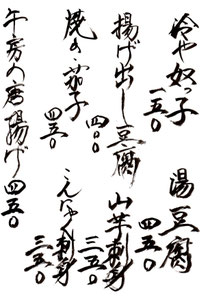 冷や奴っ子 一五〇
湯豆腐 四五〇
揚げ出し豆腐 四〇〇
山芋刺身 三五〇
焼の茄子 四五〇
こんにゃく刺身 三五〇
午房の唐揚げ 四五〇